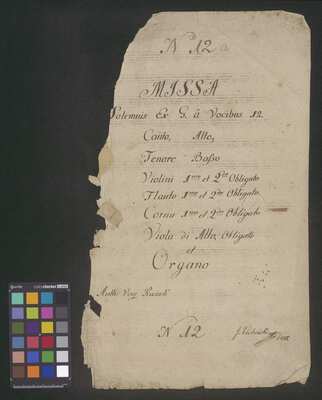 N 12
MISSA
Solemnis Ex G. â Vocibus 12.
Canto, Alto,
Tenore Basso
Violini 1mo et 2do Obligato
Flauto 1mo et 2do Obligato
Cornu 1mo et 2do Obligato
Viola di Alto, Obligato
et
Organo
N 12